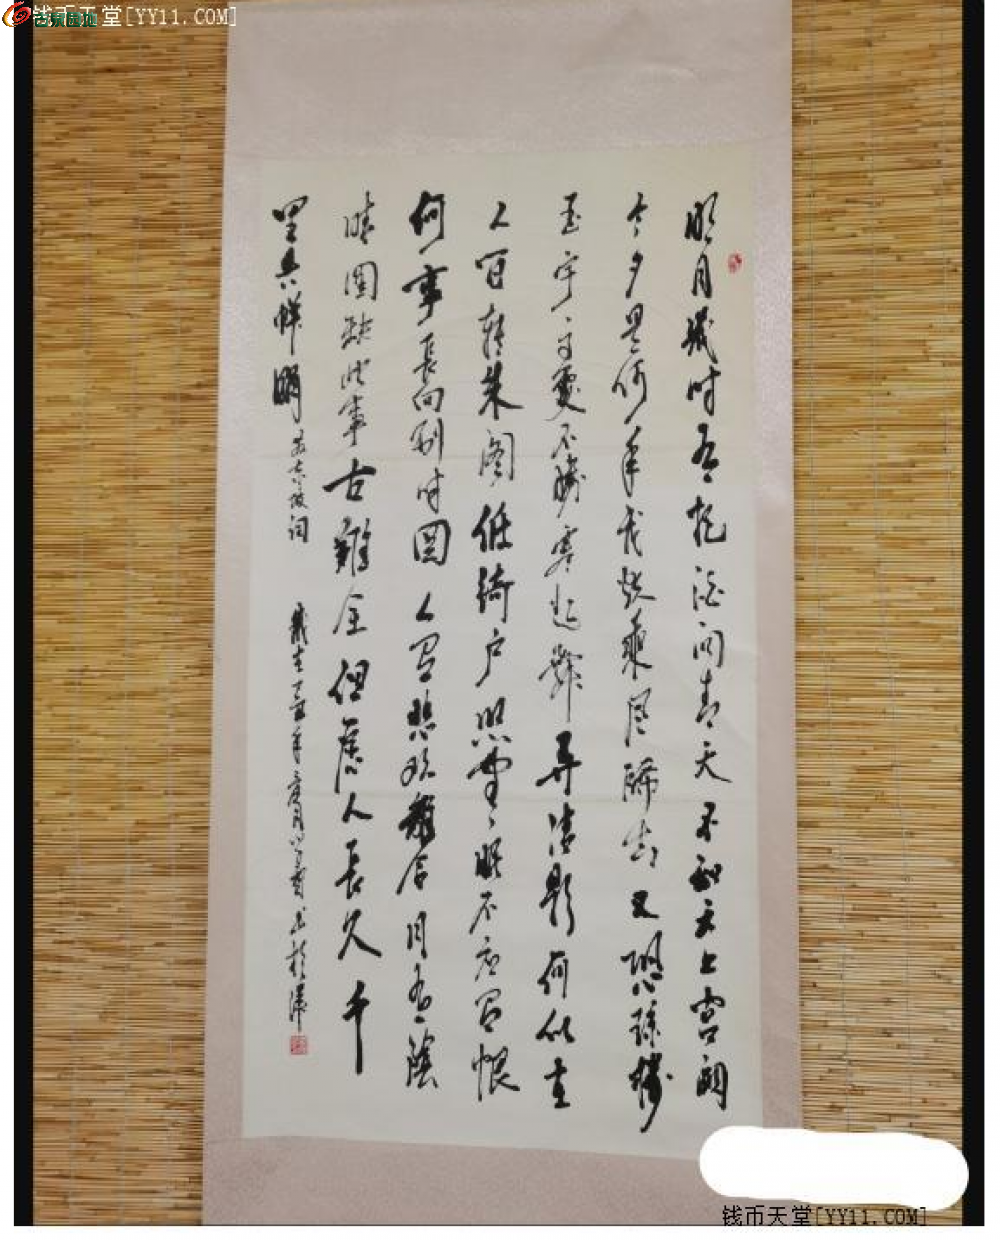 钱币天堂[YY11.COM]
明月幾时有把酒问青天不知天上宫阙
今夕是何年我欲乘风歸去又恐琼楼
玉宇高處不勝寒起舞弄清影何似在
人间转朱阁低绮户照無眠不应有恨
何事長向别时圆人有悲欢離合月有陰
晴圆缺此事古難全但愿人長久千
里共婵娟 苏东坡词 歲在丁亥年
钱币天堂[YY11.COM]